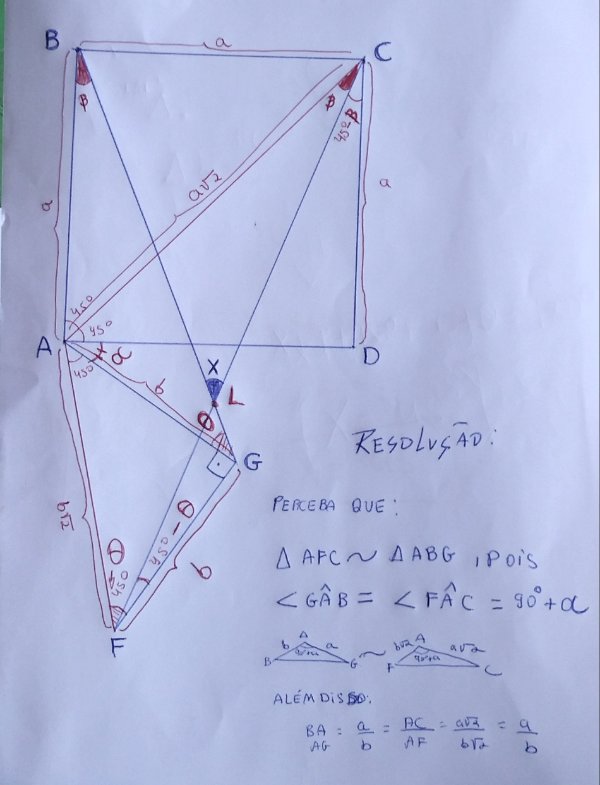 B
a
C
β
β
45º-β
a√2
a
a
45º
45º
A
D
45º
α
b
X
L
θ
G
b√2
θ
45º
45º - θ
b
F
RESOLUÇÃO:
PERCEBA QUE:
Δ AFC ~ Δ ABG , POIS
∠GÂB = ∠FÂC = 90° + α
A
b
a
90+α
B
G
~
A
b√2
a√2
90+α
F
C
ALÉM DISSO:
BA/AG = a/b = AC/AF = a√2/b√2 = a/b